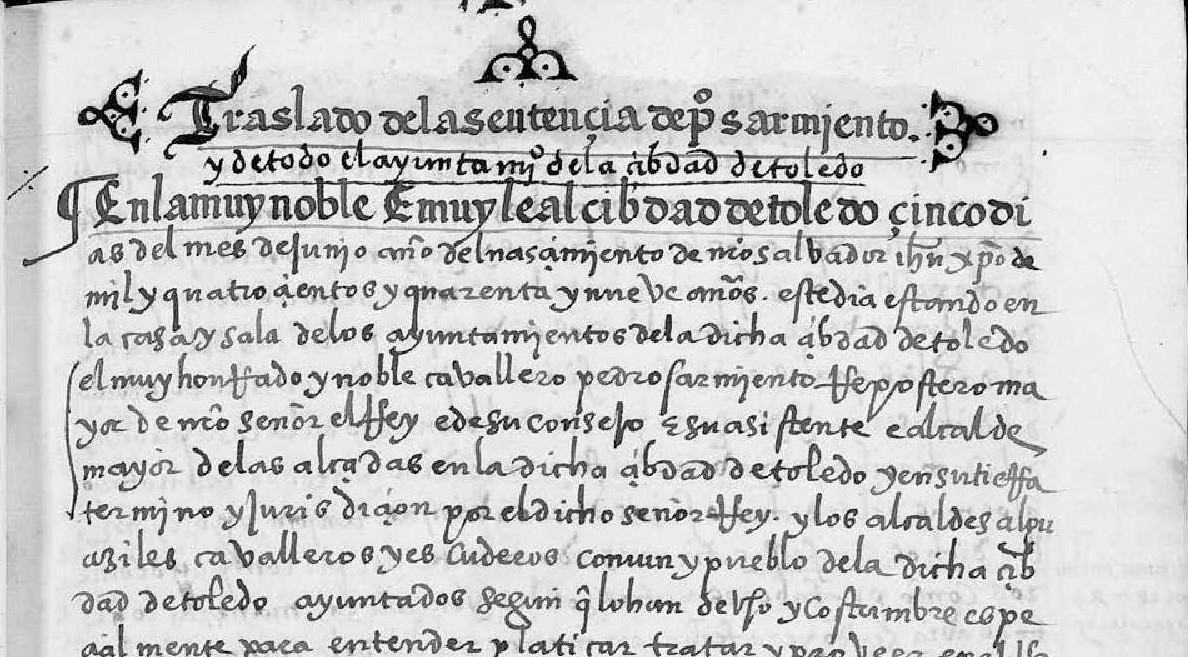 Traslado dela sentençia de pº sarmjento.
y de todo el ayuntamjº dela çibdad de toledo
¶ En la muy noble E muy leal cibdad de toledo çinco di
as del mes de Junjo año del nasçimjento de nrõ salbador ihũ xpõ de
mil y quatroçientos y quarenta y nueve años. este dia estando en
la casa y sala de los ayuntamjentos dela dicha çibdad de toledo
el muy honrrado y noble cavallero pedro sarmjento Repostero ma
yor de nrõ señor el Rey e de su consejo E su asistente e alcalde
mayor de las alçadas en la dicha çibdad de toledo y en su tierra
termino y Jurisdiçion por el dicho señor Rey. y los alcaldes algu
aziles cavalleros y escuderos comun y pueblo dela dicha cib
dad de toledo ayuntados segun q̃ lo han de vso y costumbre espe
çialmente para entender platicar tratar y proveer en el